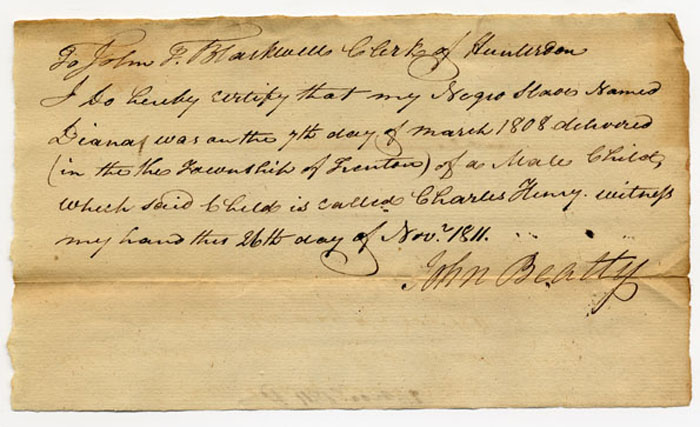 To John P. Blackwell Clerk of Hunterdon
I Do hereby certify that my Negro Slave Named
Diana, was on the 7th day of march 1808 delivered
(in the the Township of Trenton) of a Male Child,
which said Child is called Charles Henry. witness
my hand this 26th day of Novr. 1811.
John Beatty